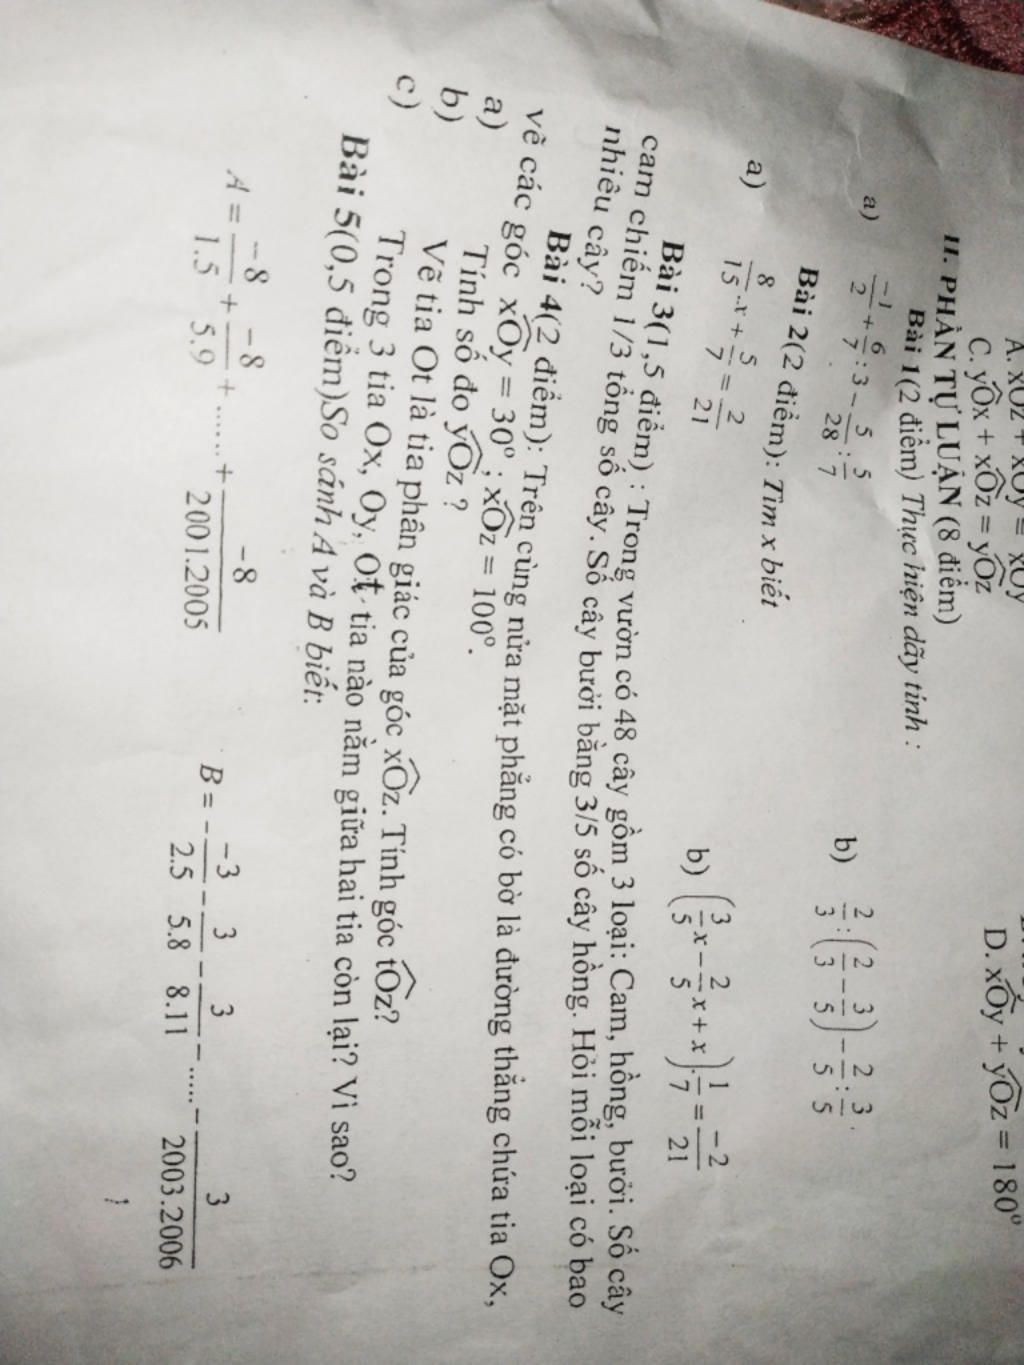 A. xOz + xOy = xOy
C. yOx + xOz = yOz
D. xOy + yOz = 180⁰
II. PHẦN TỰ LUẬN (8 điểm)
Bài 1(2 điểm) Thực hiện dãy tính :
a) -1/2 + 6/7 : 3 - 5/28 : 5/7
b) 2/3 : (2/3 - 3/5) - 2/5 : 3/5 .
Bài 2(2 điểm): Tìm x biết
a) 8/15 .x + 5/7 = 2/21
b) (3/5 x - 2/5 x + x) . 1/7 = -2/21
Bài 3(1,5 điểm) : Trong vườn có 48 cây gồm 3 loại: Cam, hồng, bưởi. Số cây
cam chiếm 1/3 tổng số cây. Số cây bưởi bằng 3/5 số cây hồng. Hỏi mỗi loại có bao
nhiêu cây?
Bài 4(2 điểm): Trên cùng nửa mặt phẳng có bờ là đường thẳng chứa tia Ox,
vẽ các góc xOy = 30⁰ ; xOz = 100⁰ .
a) Tính số đo yOz ?
b) Vẽ tia Ot là tia phân giác của góc xOz. Tính góc tOz?
c) Trong 3 tia Ox, Oy, Ot tia nào nằm giữa hai tia còn lại? Vì sao?
Bài 5(0,5 điểm)So sánh A và B biết:
A = -8/1.5 + -8/5.9 + ...... + -8/2001.2005
B = - -3/2.5 - 3/5.8 - 3/8.11 - ..... - 3/2003.2006